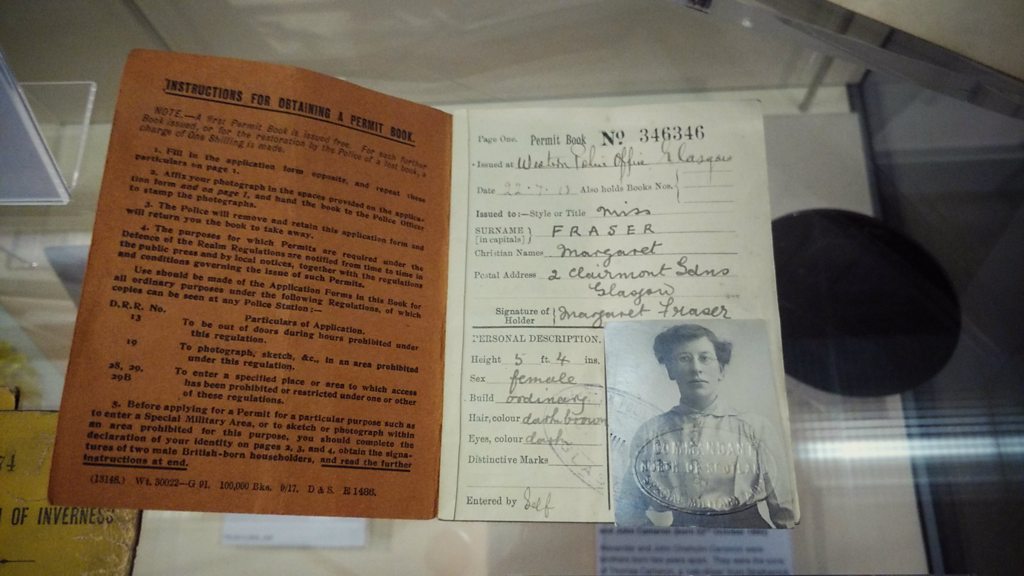 INSTRUCTIONS FOR OBTAINING A PERMIT BOOK.
NOTE.—A first Permit Book is issued free. For each further
Book issued, or for the restoration by the Police of a lost book, a
charge of One Shilling is made.
1. Fill in the application form opposite, and repeat these
particulars on page 1.
2. Affix your photograph in the spaces provided on the applica-
tion form and on page 1, and hand the book to the Police Officer
to stamp the photographs.
3. The Police will remove and retain this application form and
will return you the book to take away.
4. The purposes for which Permits are required under the
Defence of the Realm Regulations are notified from time to time in
the public press and by local notices, together with the regulations
and conditions governing the issue of such Permits.
Use should be made of the Application Forms in this Book for
all ordinary purposes under the following Regulations, of which
copies can be seen at any Police Station:—
D.R.R. No. Particulars of Application.
13 To be out of doors during hours prohibited under
this regulation.
19 To photograph, sketch, &c., in an area prohibited
under this regulation.
28, 29, To enter a specified place or area to which access
29B has been prohibited or restricted under one or other
of these regulations.
5. Before applying for a Permit for a particular purpose such as
to enter a Special Military Area, or to sketch or photograph within
an area prohibited for this purpose, you should complete the
declaration of your identity on pages 2, 3, and 4, obtain the signa-
tures of two male British-born householders, and read the further
instructions at end.
(13148.) Wt. 30022—G 91. 100,000 Bks. 9/17. D & S. E 1488.
Page One. Permit Book No 346346
Issued at Western Police Office Glasgow
Date 22.7.18 Also holds Books Nos.
Issued to:—Style or Title Miss
SURNAME FRASER
[in capitals]
Christian Names Margaret
Postal Address 2 Clairmont Gdns
Glasgow
Signature of Holder Margaret Fraser
PERSONAL DESCRIPTION.
Height 5 ft. 4 ins.
Sex female
Build ordinary
Hair, colour dark brown
Eyes, colour dark
Distinctive Marks
Entered by Self
OF INVERNESS